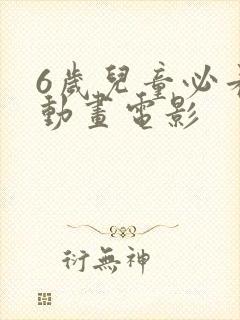 6歲兒童必看
動畫電影
衍無神